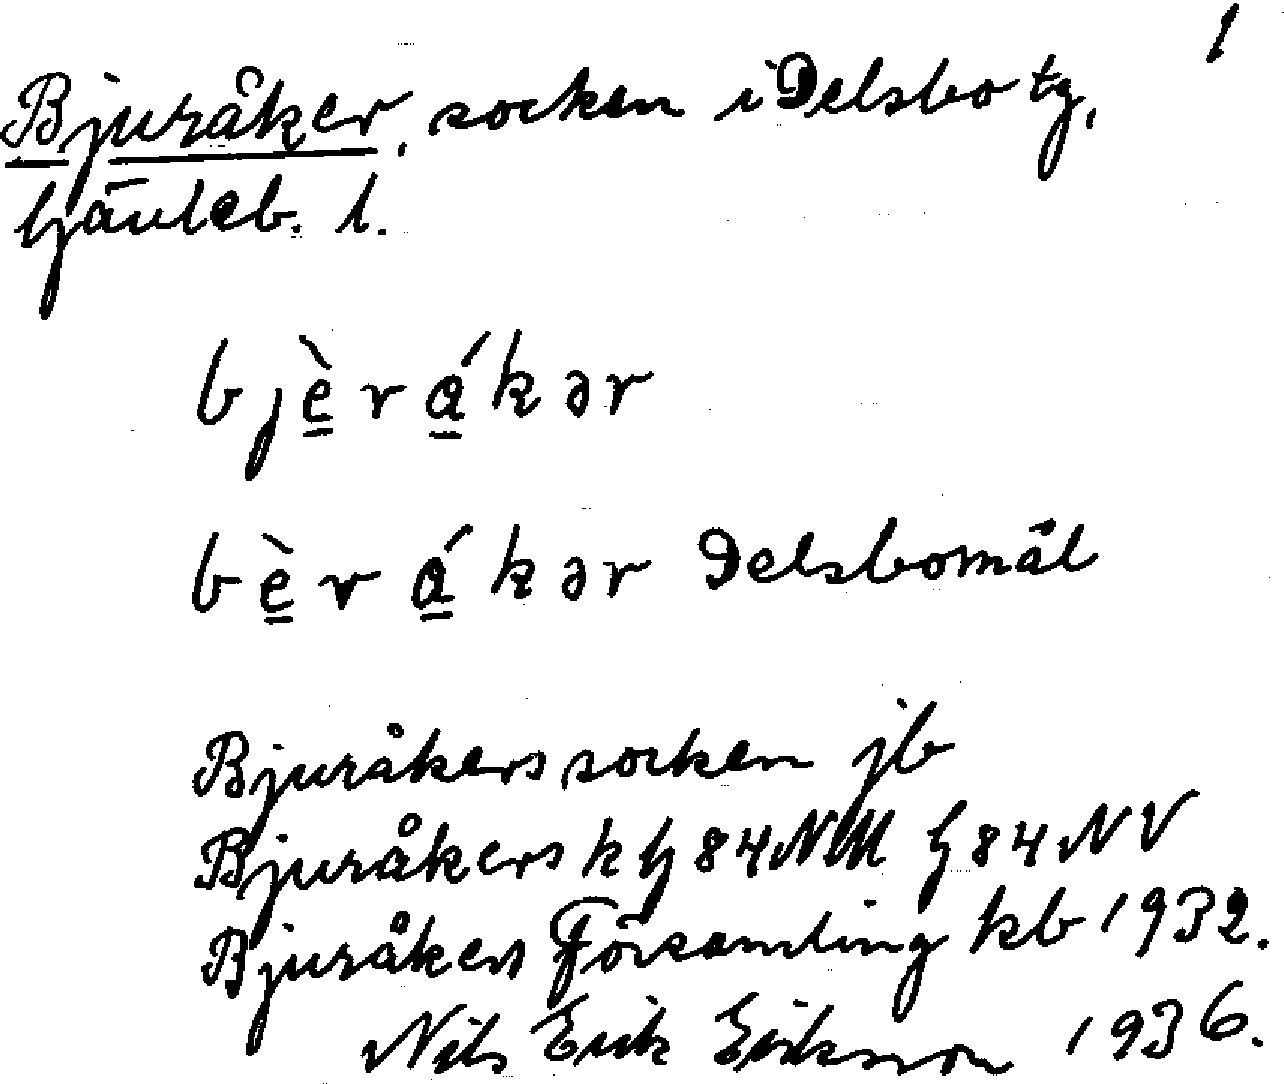 1
Bjuråker, socken i Delsbo tg,
Gävleb. l.
bjèrákər
bèrákər Delsbomål
Bjuråkers socken jb
Bjuråkers k G 84 NV
Bjuråkers Församling kb 1932.
Nils Erik Eriksson 1936.